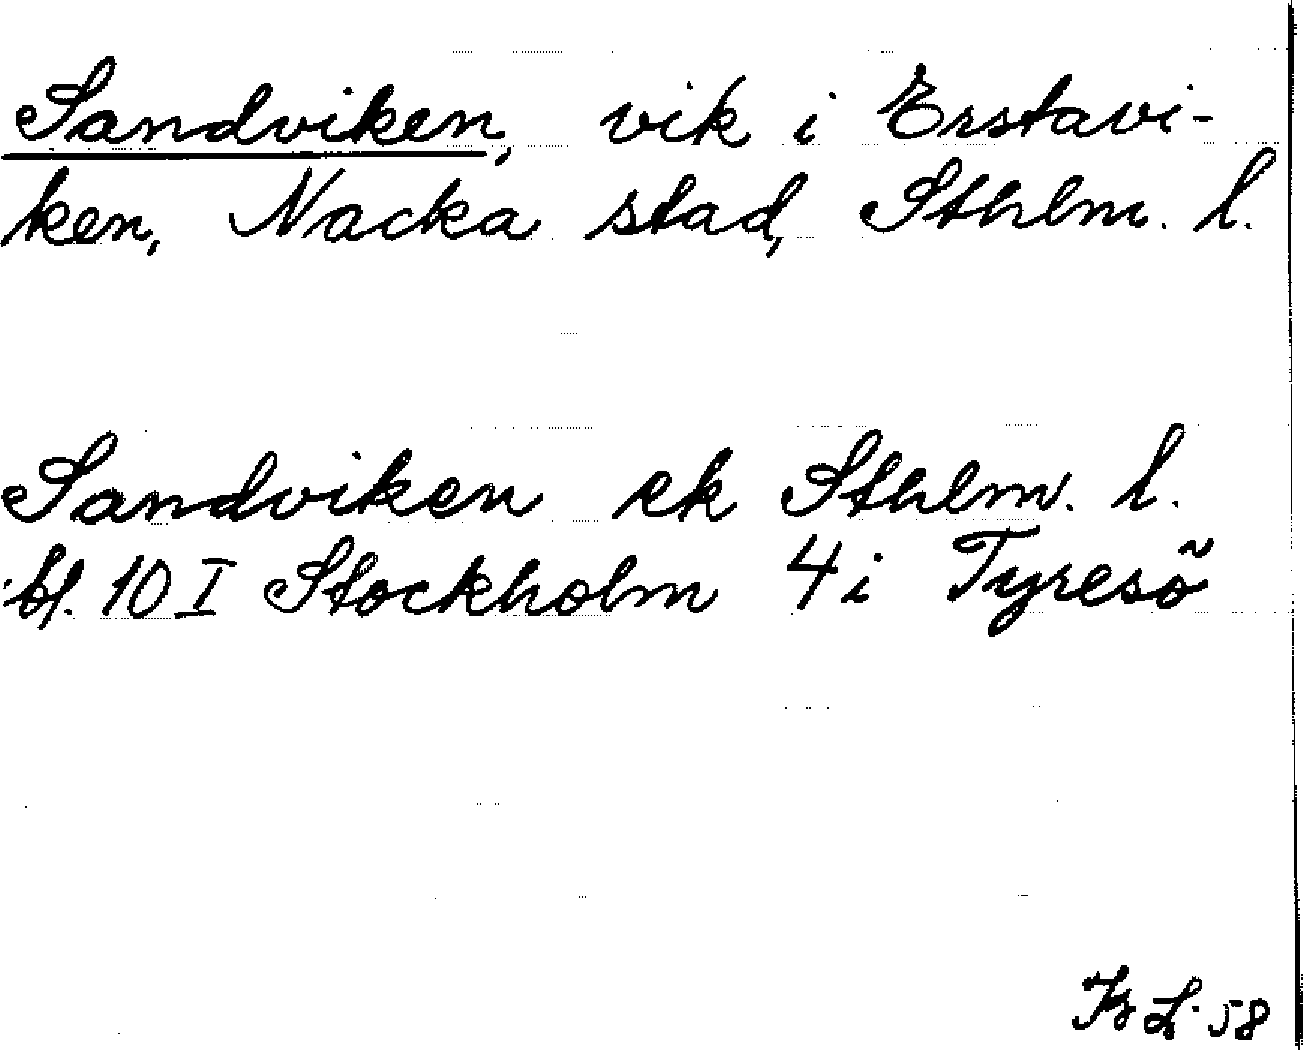 Sandviken, vik i Erstavi-
ken, Nacka stad, Sthlm. l.
Sandviken ek Sthlm. l.
bl. 10 I Stockholm 4 i Tyresö
58